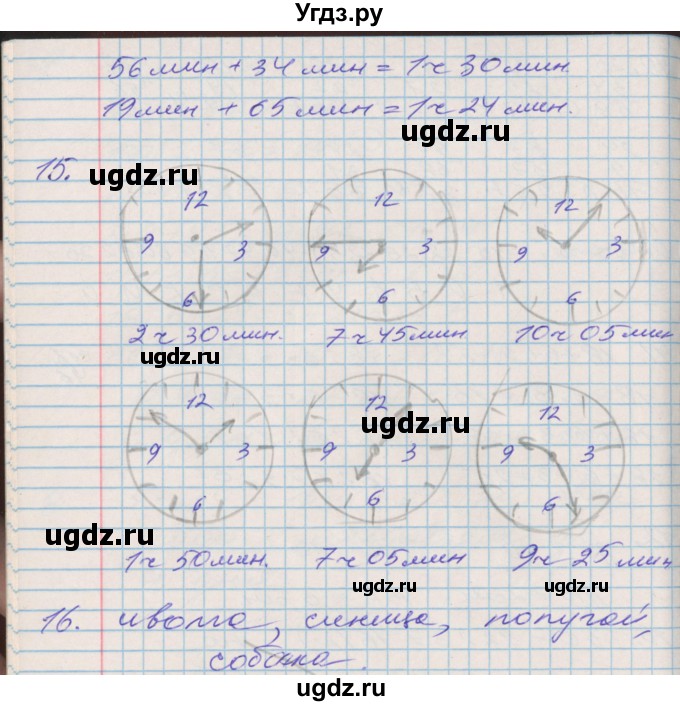 Угдз.ру
56 мин + 34 мин = 1 ч 30 мин.
19 мин + 65 мин = 1 ч 24 мин.
ugdz.ru
15.
ugdz.ru
12 9 3 6
12 9 3 6
12 9 3 6
2 ч 30 мин. 7 ч 45 мин 10 ч 05 мин
ugdz.ru
ugdz.ru
12 9 3 6
12 9 3 6
12 9 3 6
ugdz.ru
ugdz.ru
1 ч 50 мин. 7 ч 05 мин 9 ч 25 мин
ugdz.ru
ugdz.ru
16. иволга, синица, попугай,
собака.
ugdz.ru
ugdz.ru